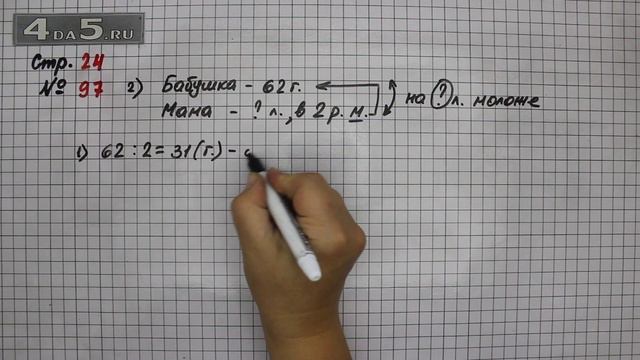 4DA5.RU
Стр. 24
№ 97 2) Бабушка - 62 г.
Мама - ? л., в 2 р. м.
на ? л. моложе
1) 62 : 2 = 31 (г.) -